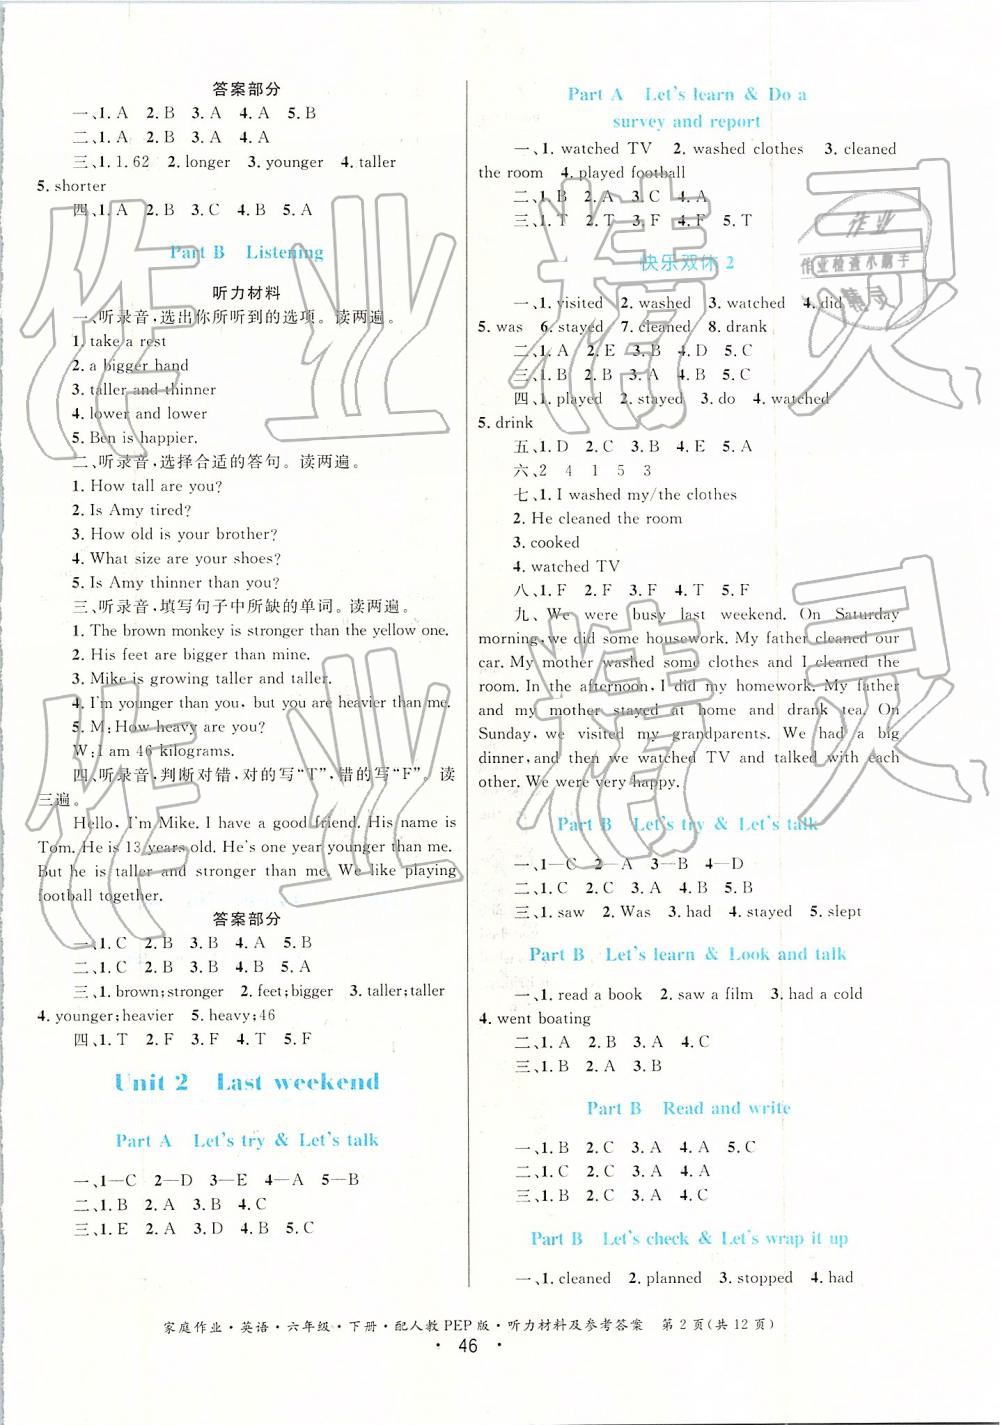 答案部分
一、1. A 2. B 3. A 4. A 5. B
二、1. A 2. B 3. A 4. A
三、1. 1.62 2. longer 3. younger 4. taller
5. shorter
四、1. A 2. B 3. C 4. B 5. A
Part B Listening
听力材料
一、听录音,选出你所听到的选项。读两遍。
1. take a rest
2. a bigger hand
3. taller and thinner
4. lower and lower
5. Ben is happier.
二、听录音,选择合适的答句。读两遍。
1. How tall are you?
2. Is Amy tired?
3. How old is your brother?
4. What size are your shoes?
5. Is Amy thinner than you?
三、听录音,填写句子中所缺的单词。读两遍。
1. The brown monkey is stronger than the yellow one.
2. His feet are bigger than mine.
3. Mike is growing taller and taller.
4. I'm younger than you, but you are heavier than me.
5. M: How heavy are you?
W: I am 46 kilograms.
四、听录音,判断对错,对的写“T”,错的写“F”。读
三遍。
Hello, I'm Mike. I have a good friend. His name is
Tom. He is 13 years old. He's one year younger than me.
But he is taller and stronger than me. We like playing
football together.
答案部分
一、1. C 2. B 3. B 4. A 5. B
二、1. C 2. B 3. A 4. B 5. B
三、1. brown;stronger 2. feet;bigger 3. taller;taller
4. younger;heavier 5. heavy;46
四、1. T 2. F 3. F 4. T 5. F
Unit 2 Last weekend
Part A Let's try & Let's talk
一、1—C 2—D 3—E 4—A 5—B
二、1. B 2. A 3. B 4. C
三、1. E 2. A 3. D 4. B 5. C
Part A Let's learn & Do a
survey and report
一、1. watched TV 2. washed clothes 3. cleaned
the room 4. played football
二、1. B 2. A 3. C 4. A
三、1. T 2. T 3. F 4. F 5. T
快乐双休 2
一、1. visited 2. washed 3. watched 4. did
5. was 6. stayed 7. cleaned 8. drank
二、1. A 2. E 3. B 4. D 5. C
三、1. B 2. B 3. A 4. B 5. C
四、1. played 2. stayed 3. do 4. watched
5. drink
五、1. D 2. C 3. B 4. E 5. A
六、2 4 1 5 3
七、1. I washed my/the clothes
2. He cleaned the room
3. cooked
4. watched TV
八、1. F 2. F 3. F 4. T 5. F
九、We were busy last weekend. On Saturday
morning, we did some housework. My father cleaned our
car. My mother washed some clothes and I cleaned the
room. In the afternoon, I did my homework. My father
and my mother stayed at home and drank tea. On
Sunday, we visited my grandparents. We had a big
dinner, and then we watched TV and talked with each
other. We were very happy.
Part B Let's try & Let's talk
一、1—C 2—A 3—B 4—D
二、1. C 2. C 3. A 4. B 5. A
三、1. saw 2. Was 3. had 4. stayed 5. slept
Part B Let's learn & Look and talk
一、1. read a book 2. saw a film 3. had a cold
4. went boating
二、1. A 2. B 3. A 4. C
三、1. B 2. A 3. B
Part B Read and write
一、1. B 2. C 3. A 4. A 5. C
二、1. C 2. C 3. A 4. A
三、1. B 2. A 3. C 4. C
Part B Let's check & Let's wrap it up
一、1. cleaned 2. planned 3. stopped 4. had
家庭作业·英语·六年级·下册·配人教PEP版·听力材料及参考答案 第2页(共12页)
· 46 ·
作业精灵
作业精灵
作业
作业检查小帮手